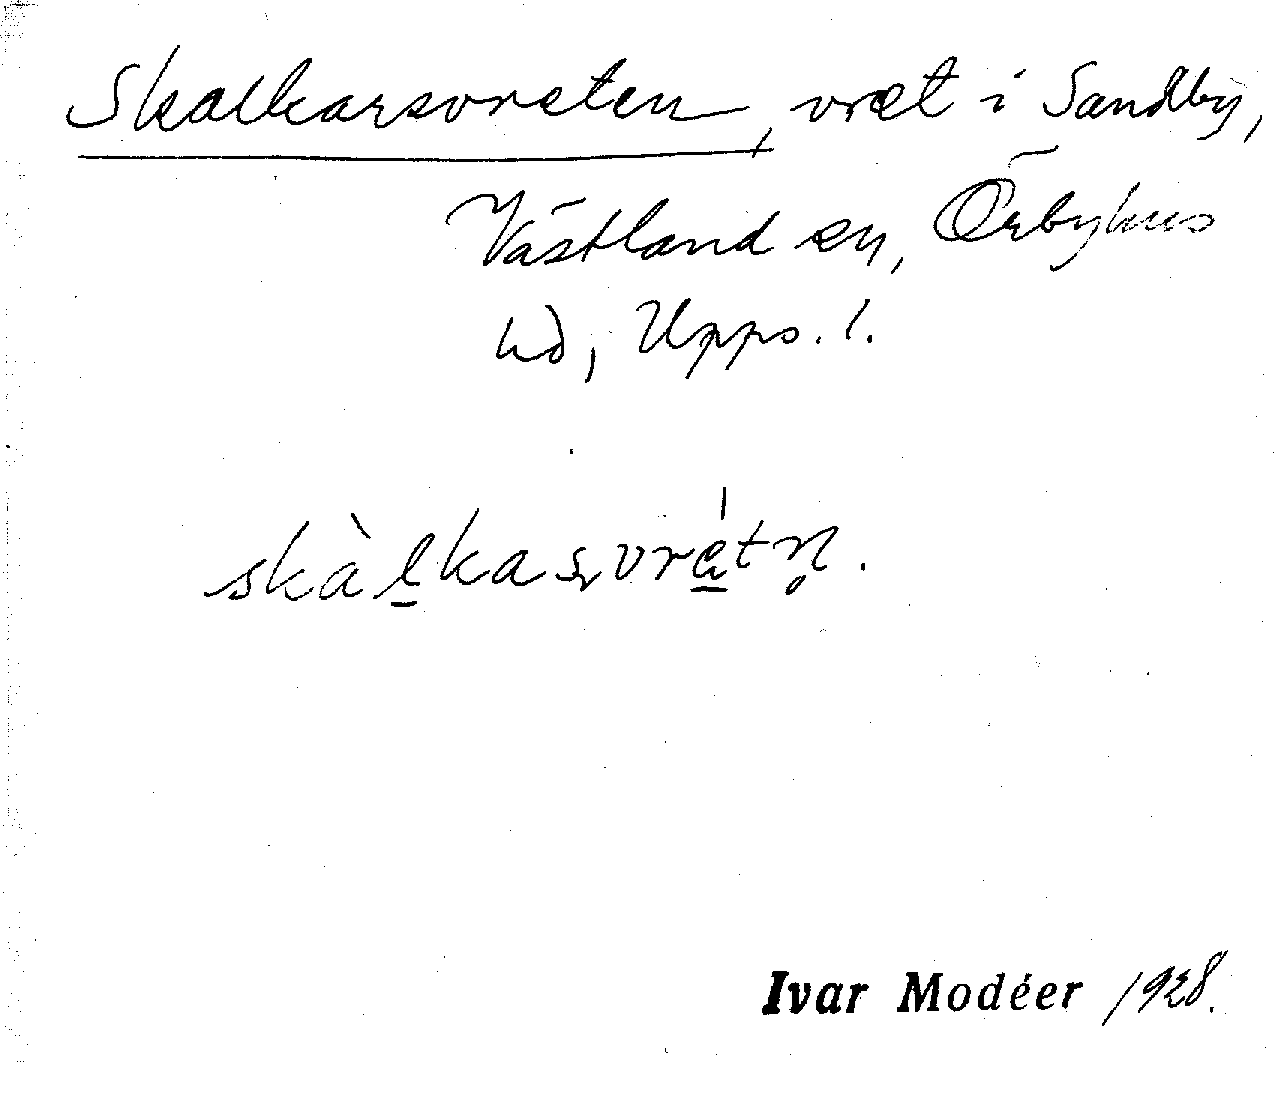 Skalkarsvreten, vret i Sandby,
Västland sn, Örbyhus
hd, Upps. l.
skàl̠kasvrǽ̠tn̥.
Ivar Modéer 1928.